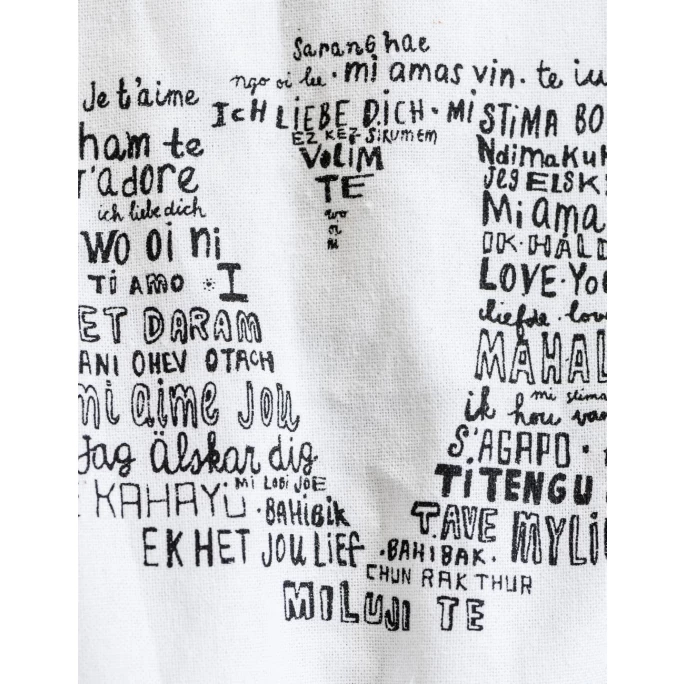 Sarang hae
ngo oi lee · mi amas vin. te iu
Je t'aime
ICH LIEBE DICH · Mi STIMA BO
ham te
EZ KEZ SIRUMEM
VOLIM
NdimaKuk
T'adore
TE
Jeg ELSK
ich liebe dich
wo
oi
ni
Mi ama
WO oi ni
IK·HALD
Ti AMO I
LOVE·YO
ET DARAM
liefde · lov
ANI OHEV OTACH
MAHAL
mi aime jou
mi stima
ik hou van
Jag Älskar dig
S'AGAPO ·
Mi LOBI JOE
TITENGU
KAHAYU · BAHIBIK
T.AVE MYLIU
EK HET JOU LIEF · BAHIBAK.
CHUN RAK THUR
MILUJI TE